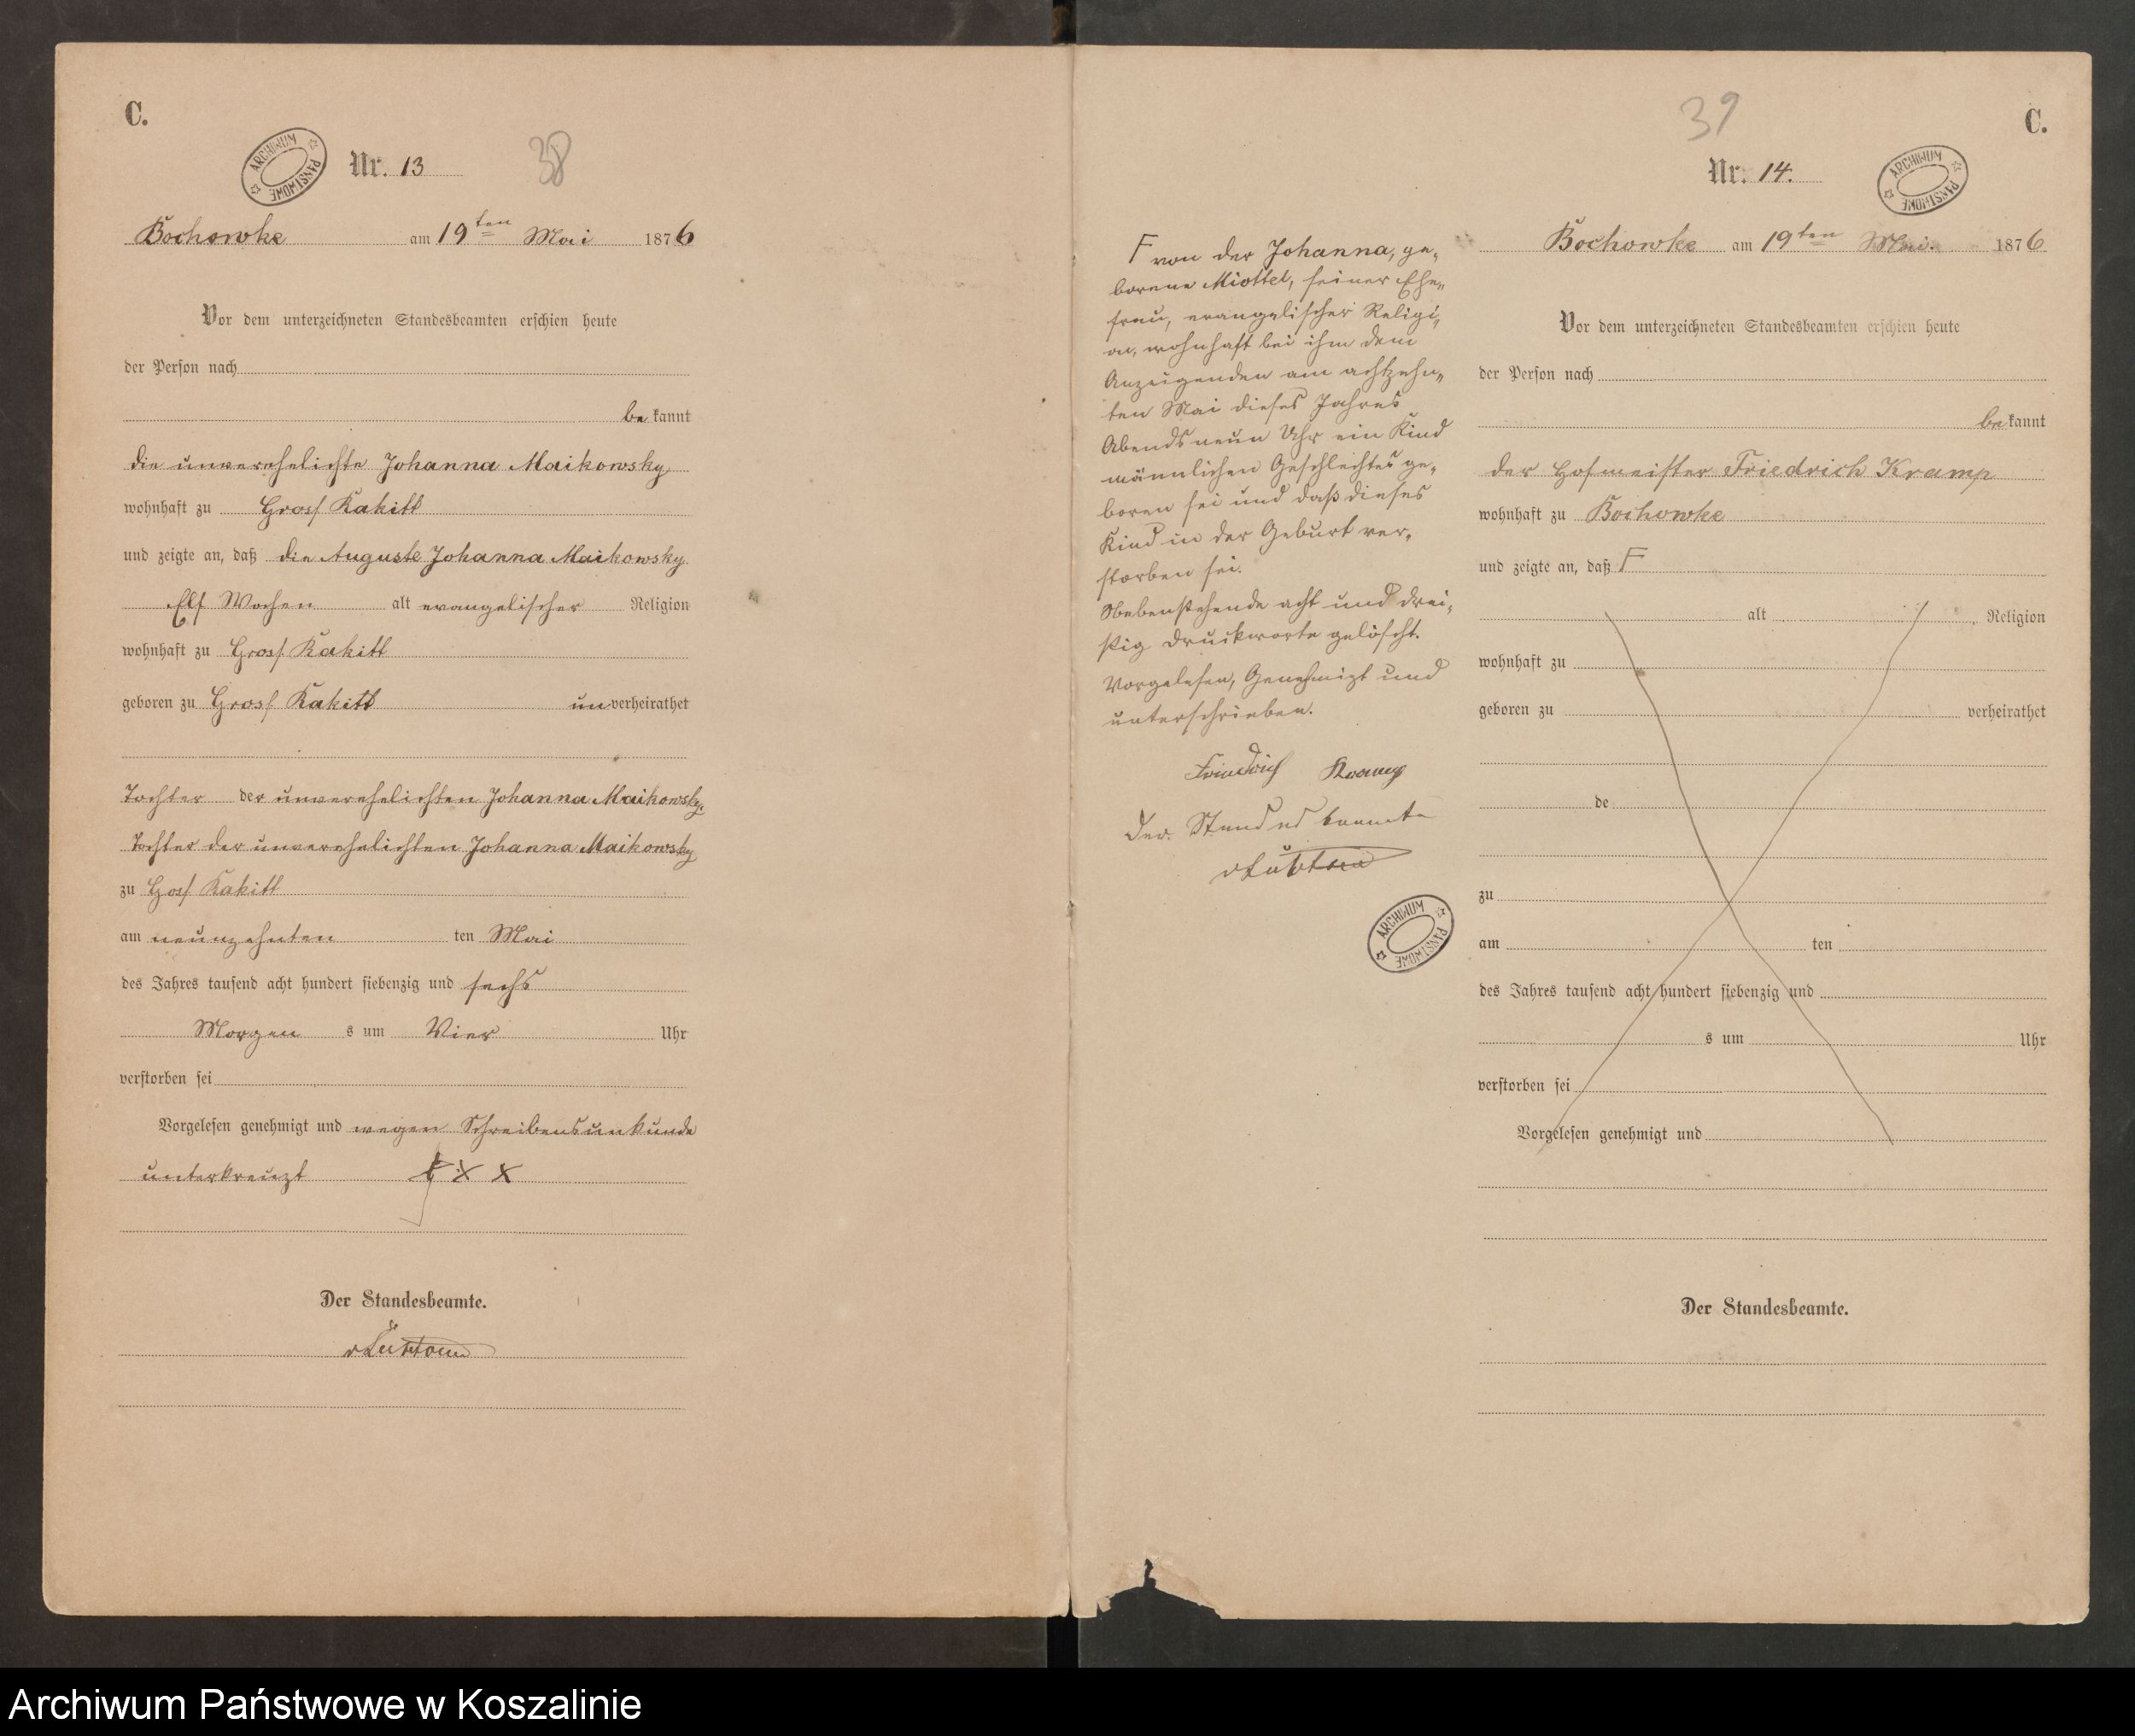 C.
ARCHIWUM PAŃSTWOWE
Nr. 13
38
Bochowke am 19ten Mai 1876
Vor dem unterzeichneten Standesbeamten erschien heute
der Person nach
be kannt
die unverehelichte Johanna Maikowsky
wohnhaft zu Gross Rakitt
und zeigte an, daß die Auguste Johanna Maikowsky
Elf Wochen alt evangelischer Religion
wohnhaft zu Gross Rakitt
geboren zu Gross Rakitt un verheirathet
Tochter der unverehelichten Johanna Maikowsky.
Tochter der unverehelichten Johanna Maikowsky
zu Goss Rakitt
am neunzehnten ten Mai
des Jahres tausend acht hundert siebenzig und sechs
Morgen s um Vier Uhr
verstorben sei
Vorgelesen genehmigt und wegen Schreibensunkunde
unterkreuzt x x x
Der Standesbeamte.
F von der Johanna, ge-
borene Miottel, seiner Ehe-
frau, evangelischer Religi-
on, wohnhaft bei ihm dem
Anzeigenden am achtzehn-
ten Mai dieses Jahres
Abends neun Uhr ein Kind
männlichen Geschlechtes ge-
boren sei und daß dieses
Kind in der Geburt ver-
storben sei.
Nebenstehende acht und drei-
ßig Druckworte gelöscht.
Vorgelesen, Genehmigt und
unterschrieben.
Friedrich Kramp
Der Standesbeamte
ARCHIWUM PAŃSTWOWE
39
C.
Nr. 14.
ARCHIWUM PAŃSTWOWE
Bochowke am 19ten Mai. 1876
Vor dem unterzeichneten Standesbeamten erschien heute
der Person nach
be kannt
der Hofmeister Friedrich Kramp
wohnhaft zu Bochowke
und zeigte an, daß F
alt , Religion
wohnhaft zu
geboren zu verheirathet
de
zu
am ten
des Jahres tausend acht hundert siebenzig und
s um Uhr
verstorben sei
Vorgelesen genehmigt und
Der Standesbeamte.
Archiwum Państwowe w Koszalinie